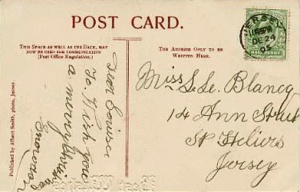 POST CARD.
THIS SPACE AS WELL AS THE BACK, MAY
NOW BE USED FOR COMMUNICATION
(Post Office Regulation.)
THE ADDRESS ONLY TO BE
WRITTEN HERE.
JERSEY
DE 24
Dear Louisa
to wish you
a merry Xmas
Miss L. Le Blancq
14 Ann Street
St Heliers
Jersey
Published by Albert Smith, photo, Jersey